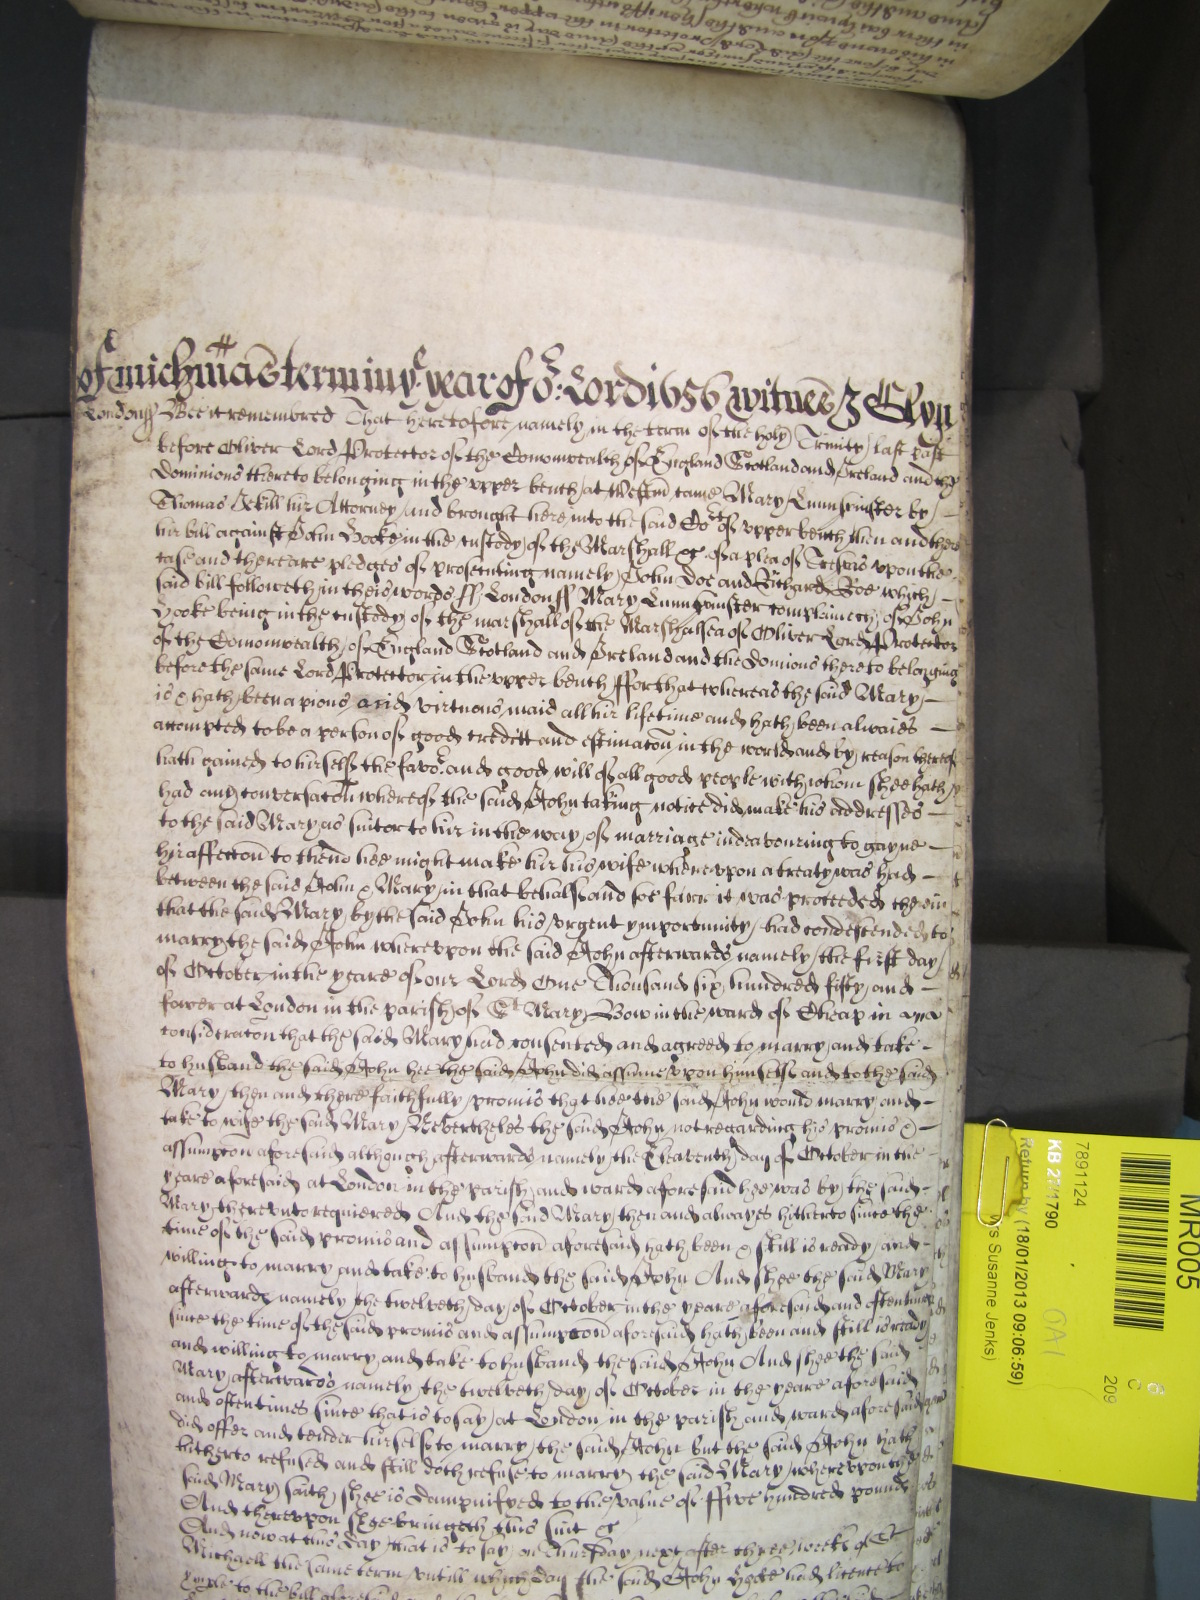 of Michmas terme in ye year of or: Lord 1656 witnes J Glyn
London ss Bee it remembred That heretofore namely in the term of the holy Trinity last past
before Oliver Lord Protector of the Comonwealth of England Scotland and Ireland and the
Dominions thereto belonging in the upper bench at Westm came Mary Lunn spinster by
Thomas his Attorney and brought here into the said Cort of upper bench then and there
hir bill against John Hooke in the custody of the Marshall &c of a plea of Trespas upon the
case and there are pledges of prosecuting namely John Doe and Richard Roe which
said bill followeth in theis words ss London ss Mary Lunn spinster complaineth of John
Hooke being in the custody of the marshall of the Marshalsea of Oliver Lord Protector
of the Comonwealth of England Scotland and Ireland and the Domions thereto belonging
before the same Lord Protector in the upper bench ffor that whereas the said Mary
is & hath been a pious and virtuous maid all hir lifetime and hath been alwaies
accompted to be a person of good creditt and estimacon in the world and by reason thereof
hath gained to hirself the favor and good will of all good people with whom shee hath
had any conversacon whereof the said John taking notice did make his addresses
to the said Mary as suitor to hir in the way of marriage indeavouring to gayne
hir affeccon to thend hee might make hir his wife whereupon a treaty was had
between the said John & Mary in that behalf and soe farr it was proceeded therein
that the said Mary by the said John his urgent ymportunity had condescended to
marry the said John whereupon the said John afterwards namely the first day
of October in the yeare of our Lord One Thousand six hundred fifty and
fower at London in the parish of St Mary Bow in the ward of Cheap in
consideracon that the said Mary had consented and agreed to marry and take
to husband the said John hee the said John did assume upon himself and to the said
Mary then and there faithfully promis that hee the said John would marry and
take to wife the said Mary Nevertheles the said John not regarding his promis &
assumpcon aforesaid although afterwards namely the Eleaventh day of October in the
yeare aforesaid at London in the parish and ward aforesaid hee was by the said
Mary thereunto requiered And the said Mary then and alwayes hitherto since the
time of the said promis and assumpcon aforesaid hath been & still is ready and
willing to marry and take to husband the said John And shee the said Mary
afterwards namely the twelveth day of October in the yeare aforesaid and oftentimes
since the time of the said promis and assumpcon aforesaid hath been and still is ready
and willing to marry and take to husband the said John And shee the said
Mary afterwards namely the twelveth day of October in the yeare aforesaid
and oftentimes since that is to say at London in the parish and ward aforesaid
did offer and tender hirself to marry the said John but the said John hath
hitherto refused and still doth refuse to marry the said Mary whereupon the
said Mary saith shee is dampnifyed to the value of ffive hundred pounds
And thereupon shee bringeth this suit &c
And now at this day that is to say on Thursday next after three weeks of St
Michaell the same term untill which day the said John Hooke had licence to
imple to the bill aforesaid
MR005
7891124
KB 27/1790
Return by (18/01/2013 09:06:59)
Mrs Susanne Jenks)
209